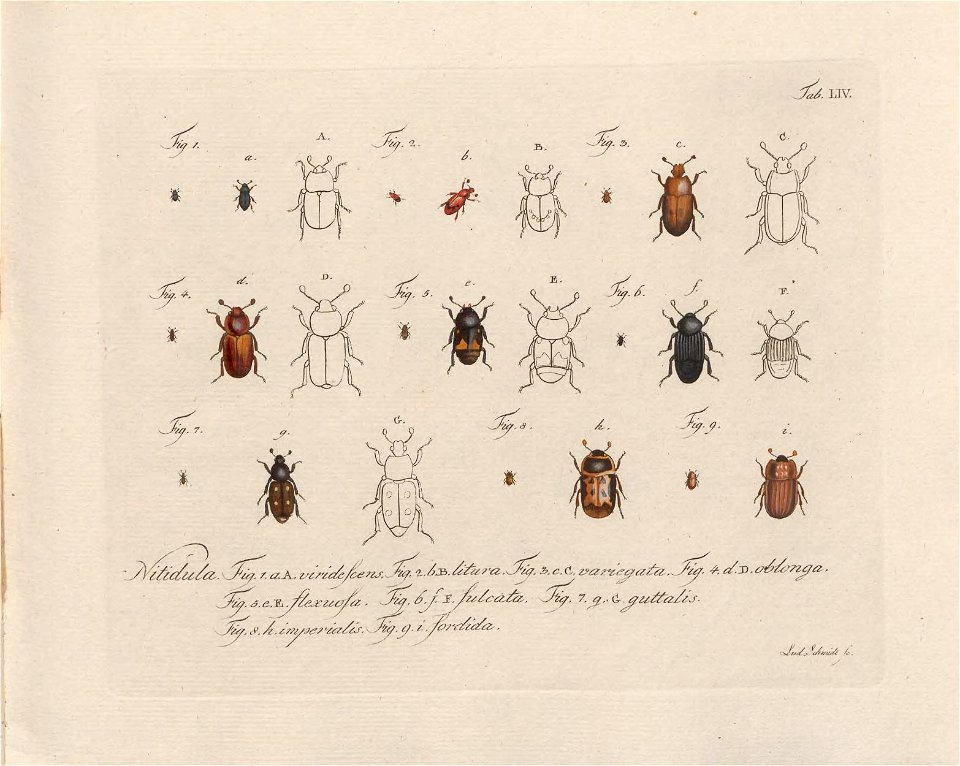 Tab. LIV.
Fig 1. a. A. Fig. 2. b. B. Fig. 3. c. C.
Fig. 4. d. D. Fig. 5. e. E. Fig. 6. f. F.
Fig. 7. g. G. Fig. 8. h. Fig. 9. i.
Nitidula. Fig. 1. a. A. videſcens. Fig. 2. b. B. litura. Fig. 3. c. C. variegata. Fig. 4. d. D. oblonga.
Fig. 5. e. E. flexuoſa. Fig. 6. f. F. ſulcata. Fig. 7. g. G guttalis.
Fig. 8. h. imperialis. Fig. 9. i. ſordida.
Lud. Schmidt sc.